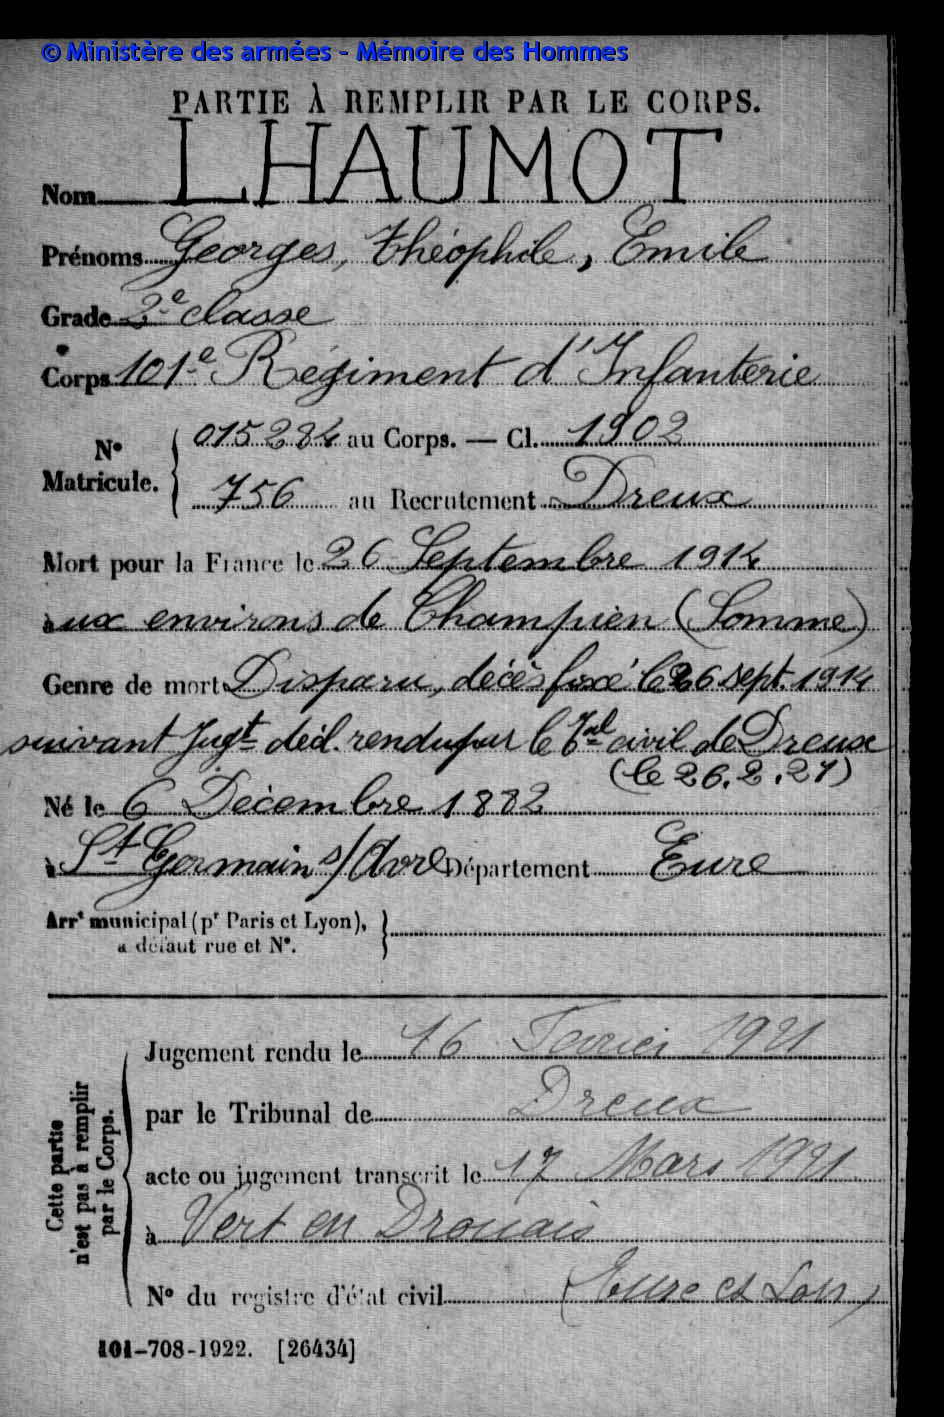 © Ministère des armées - Mémoire des Hommes
PARTIE À REMPLIR PAR LE CORPS.
Nom LHAUMOT
Prénoms Georges, Théophile, Emile
Grade 2e classe
Corps 101e Régiment d'Infanterie
No Matricule. { 015284 au Corps. — Cl. 1902
756 au Recrutement Dreux
Mort pour la France le 26 Septembre 1914
aux environs de Champien (Somme)
Genre de mort Disparu, décès fixé le 26 sept. 1914
suivant Jugt décl. rendu par le Tal civil de Dreux
(le 26.2.21)
Né le 6 Décembre 1882
à St Germain s/Avre Département Eure
Arrt municipal (pr Paris et Lyon), }
à défaut rue et No.
Cette partie n'est pas à remplir par le Corps.
Jugement rendu le 16 Fevrier 1921
par le Tribunal de Dreux
acte ou jugement transcrit le 17 Mars 1921
à Vert en Drouais
No du registre d'état civil (Eure et Loir)
101-708-1922. [26434]